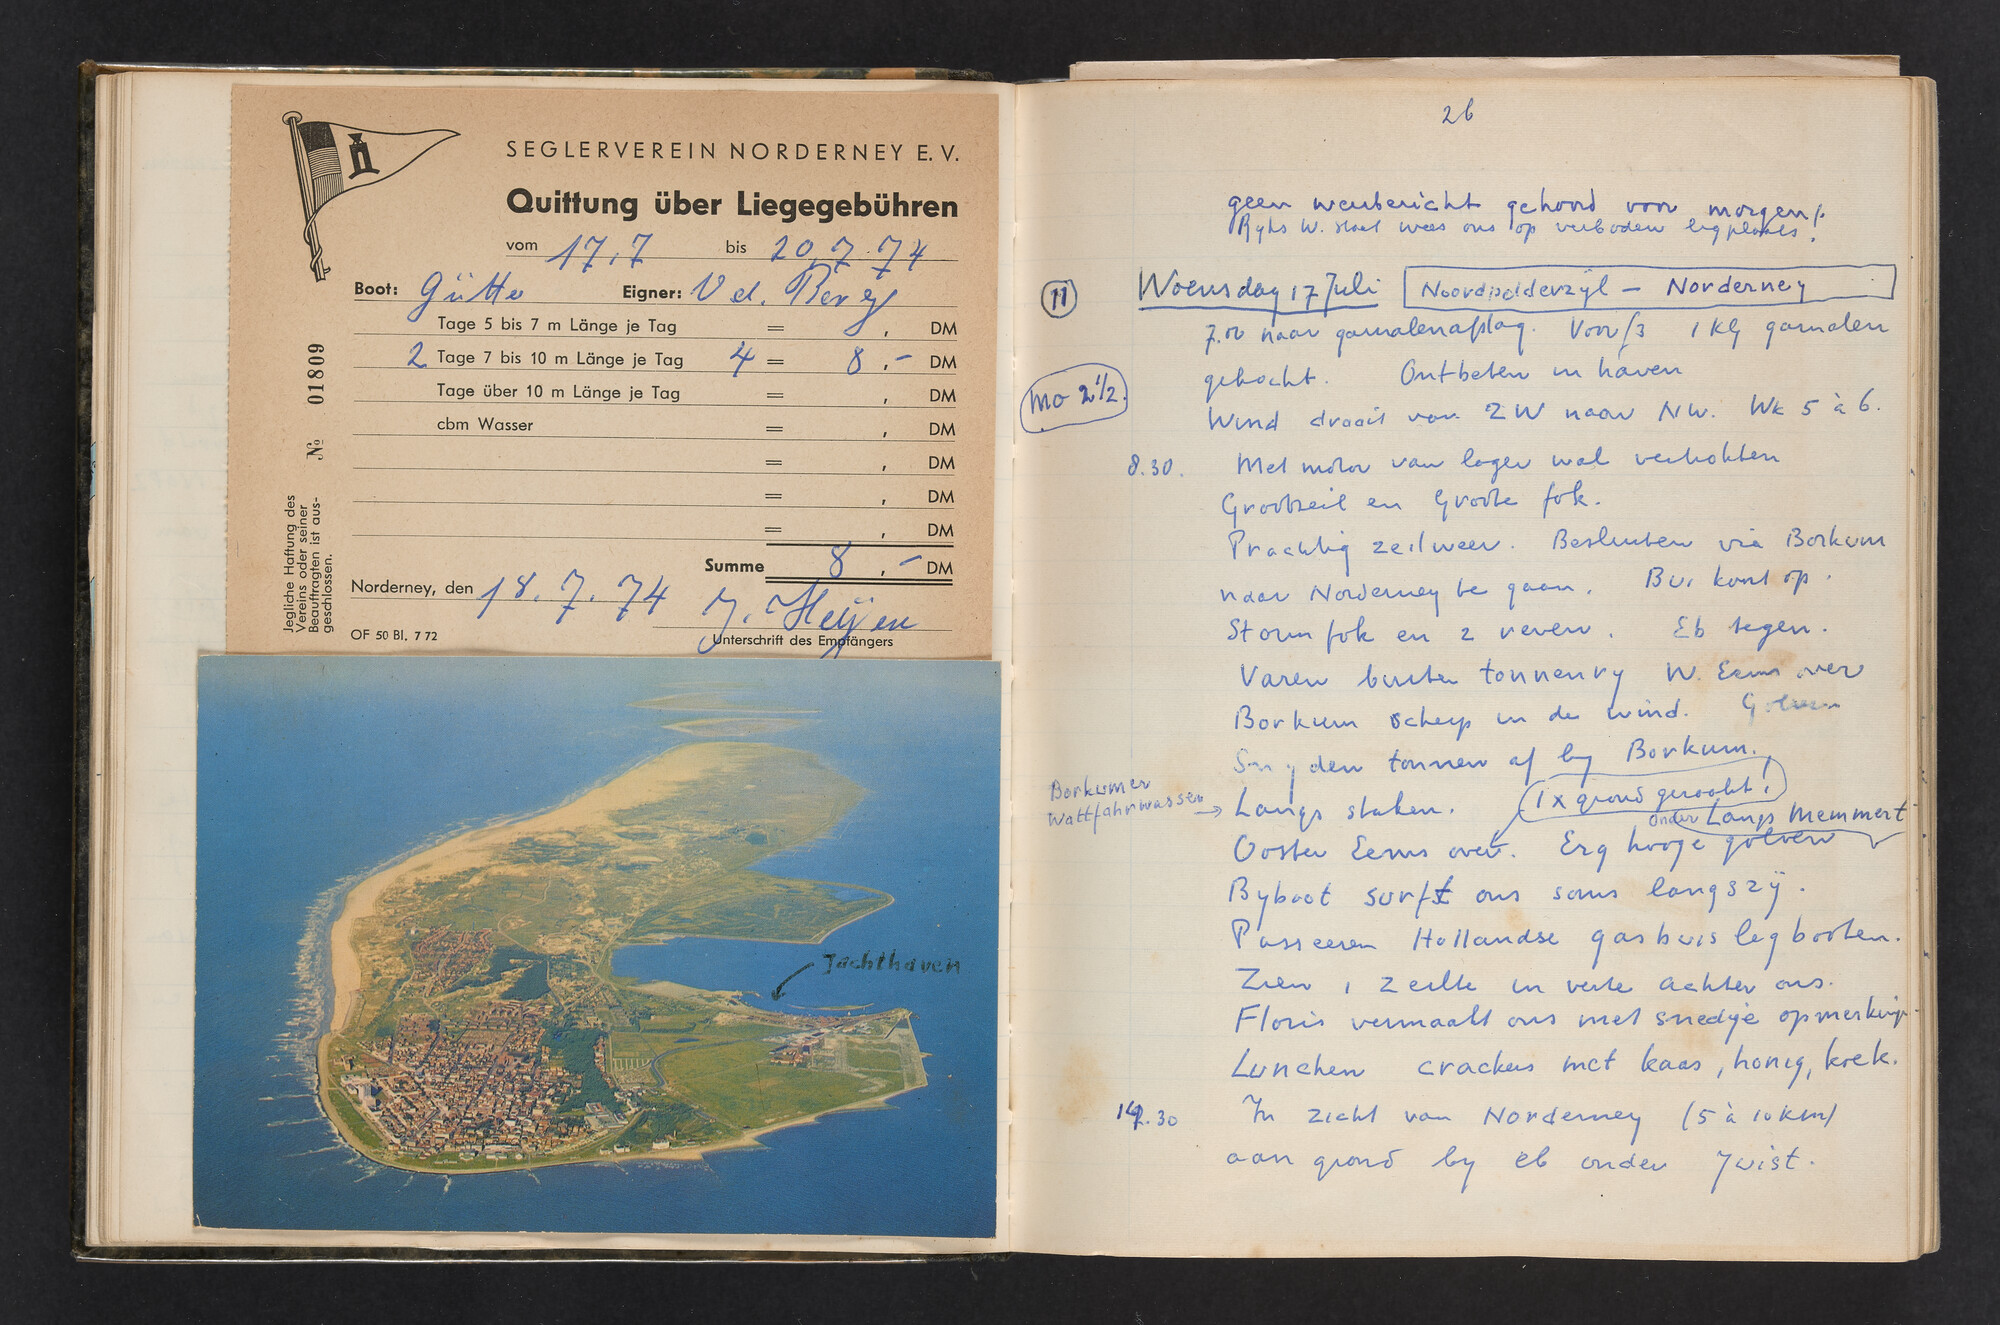 SEGLERVEREIN NORDERNEY E. V.
Quittung über Liegegebühren
vom 17.7 bis 20.7.74
Boot: Gütte Eigner: V d. Berg
Tage 5 bis 7 m Länge je Tag = , DM
2 Tage 7 bis 10 m Länge je Tag 4 = 8 ,- DM
Tage über 10 m Länge je Tag = , DM
cbm Wasser = , DM
= , DM
= , DM
= , DM
Summe 8 ,- DM
Norderney, den 18.7.74
Unterschrift des Empfängers
OF 50 Bl. 7 72
№ 01809
Jegliche Haftung des
Vereins oder seiner
Beauftragten ist aus-
geschlossen.
Jachthaven
26
geen weerbericht gehoord voor morgen!
Ryks W. staat wees ons op verboden ligplaats!
11
Woensdag 17 Juli Noordpolderzyl – Norderney
7.00 naar garnalenafslag. Voor f3 1 kg garnalen
gekocht. Ontbeten in haven
mo 2 1/2.
Wind draait van ZW naar NW. Wk 5 à 6.
8.30. Met motor van lager wal vertrokken
Grootzeil en Groote fok.
Prachtig zeilweer. Besluiten via Borkum
naar Norderney te gaan. Bui komt op.
Stormfok en 2 reven. Eb tegen.
Varen buiten tonnenry W. Eems over
Borkum scherp in de wind. Golven
Snyden tonnen af by Borkum.
Borkumer
Wattfahrwasser → Langs staken. 1x grond geraakt!
onder Langs Memmert
Ooster Eems over. Erg hooge golven
Byboot surft ons soms langszÿ.
Passeeren Hollandse gasbuis legboten.
Zien 1 zeiltje in verte achter ons.
Floris vermaakt ons met snedige opmerking.
Lunchen crackers met kaas, honig, koek.
14.30 In zicht van Norderney (5 à 10 km)
aan grond by eb onder Juist.